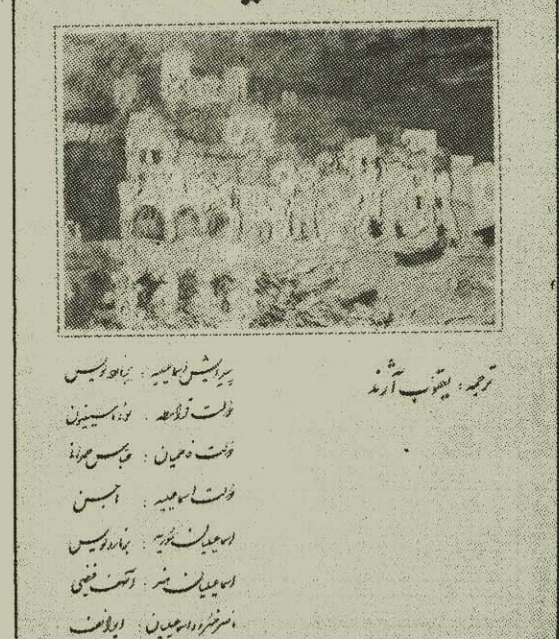 ترجمه: یعقوب آژند
پیدایش اسماعیلیه: برنارد لویس
دولت قرامطه:
دولت فاطمیان: عباس همدانی
دولت اسماعیلیه: هاجسن
اسماعیلیان سوریه: برنارد لویس
اسماعیلیان هند: آصف فیضی
ناصرخسرو و اسماعیلیان: ایوانف